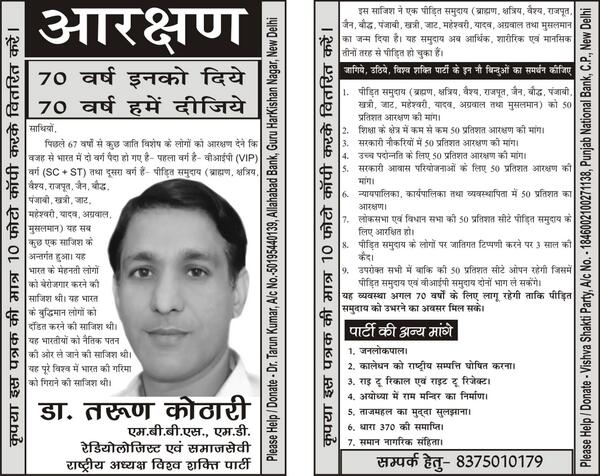 आरक्षण
70 वर्ष इनको दिये
70 वर्ष हमें दीजिये
साथियों,
पिछले 67 वर्षों से कुछ जाति विशेष के लोगों को आरक्षण देने कि
वजह से भारत में दो वर्ग पैदा हो गए है– पहला वर्ग है– वीआईपी (VIP)
वर्ग (SC + ST) तथा दूसरा वर्ग है– पीड़ित समुदाय (ब्राह्मण, क्षत्रिय,
वैश्य, राजपूत, जैन, बौद्ध,
पंजाबी, खत्री, जाट,
महेश्वरी, यादव, अग्रवाल,
मुसलमान) यह सब
कुछ एक साजिश के
अन्तर्गत हुआ। यह
भारत के मेहनती लोगों
को बेरोजगार करने की
साजिश थी। यह भारत
के बुद्धिमान लोगों को
दंडित करने की साजिश थी।
यह भारतीयों को नैतिक पतन
की ओर ले जाने की साजिश थी।
यह पूरे विश्व में भारत की गरिमा
को गिराने की साजिश थी।
डा. तरूण कोठारी
एम.बी.बी.एस., एम.डी.
रेडियोलोजिस्ट एवं समाजसेवी
राष्ट्रीय अध्यक्ष विश्व शक्ति पार्टी
कृपया इस पत्रक की मात्र 10 फोटो कॉपी करके वितरित करें।
Please Help / Donate - Dr. Tarun Kumar, A/c No.-50195440139, Allahabad Bank, Guru HarKishan Nagar, New Delhi
इस साजिश ने एक पीड़ित समुदाय (ब्राह्मण, क्षत्रिय, वैश्य, राजपूत,
जैन, बौद्ध, पंजाबी, खत्री, जाट, महेश्वरी, यादव, अग्रवाल तथा मुसलमान
का जन्म दिया है। यह समुदाय अब आर्थिक, शारीरिक एवं मानसिक
तीनों तरह से पीड़ित हो चुका हैं।
जागिये, उठिये, विश्व शक्ति पार्टी के इन नौ बिन्दुओं का समर्थन कीजिए
1. पीड़ित समुदाय (ब्राह्मण, क्षत्रिय, वैश्य, राजपूत, जैन, बौद्ध, पंजाबी,
खत्री, जाट, महेश्वरी, यादव, अग्रवाल तथा मुसलमान) को 50
प्रतिशत आरक्षण की मांग।
2. शिक्षा के क्षेत्र में कम से कम 50 प्रतिशत आरक्षण की मांग।
3. सरकारी नौकरियों में 50 प्रतिशत आरक्षण की मांग।
4. उच्च पदोन्नति के लिए 50 प्रतिशत आरक्षण की मांग।
5. सरकारी आवास परियोजनाओं के लिए 50 प्रतिशत आरक्षण की
मांग।
6. न्यायपालिका, कार्यपालिका तथा व्यवस्थापिता में 50 प्रतिशत का
आरक्षण।
7. लोकसभा एवं विधान सभा की 50 प्रतिशत सीटे पीड़ित समुदाय के
लिए आरक्षित हो।
8. पीड़ित समुदाय के लोगों पर जातिगत टिप्पणी करने पर 3 साल की
कैद।
9. उपरोक्त सभी में बाकि की 50 प्रतिशत सीटे ओपन रहेगी जिसमें
पीड़ित वर्ग एवं वीआईपी समुदाय दोनों भाग ले सकेंगे।
यह व्यवस्था अगल 70 वर्षों के लिए लागू रहेगी ताकि पीड़ित
समुदाय को उभरने का अवसर मिल सके।
पार्टी की अन्य मांगे
1. जनलोकपाल।
2. कालेधन को राष्ट्रीय सम्पत्ति घोषित करना।
3. राइ टू रिकाल एवं राइट टू रिजेक्ट।
4. अयोध्या में राम मन्दिर का निर्माण।
5. ताजमहल का मुद्दा सुलझाना।
6. धारा 370 की समाप्ति।
7. समान नागरिक संहिता।
सम्पर्क हेतु- 8375010179
कृपया इस पत्रक की मात्र 10 फोटो कॉपी करके वितरित करें।
Please Help / Donate - Vishva Shakti Party, A/c No. - 1846002100271138, Punjab National Bank, C.P., New Delhi